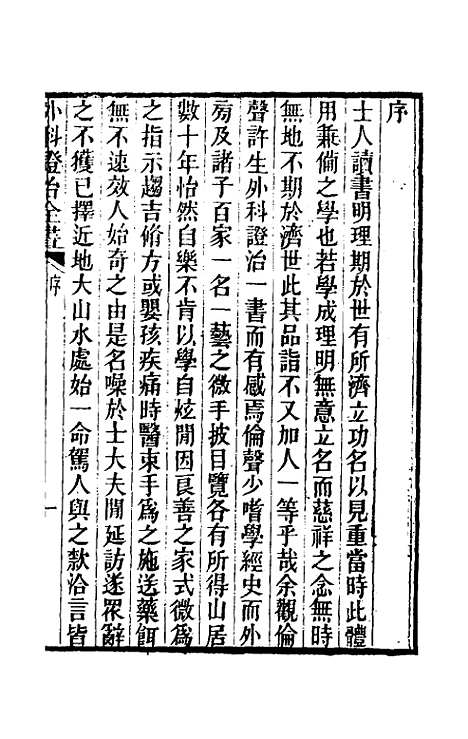 序
士人讀書明理期於世有所濟立功名以見重當時此體
用兼備之學也若學成理明無意立名而慈祥之念無時
無地不期於濟世此其品詣不又加人一等乎哉余觀倫
聲許生外科證治一書而有感焉倫聲少嗜學經史而外
旁及諸子百家一名一藝之微手披目覽各有所得山居
數十年怡然自樂不肯以學自炫閒因良善之家式微為
之指示趨吉脩方或嬰孩疾痛時醫束手為之施送藥餌
無不速效人始奇之由是名噪於士大夫閒延訪遂眾辭
之不獲已擇近地大山水處始一命駕人與之欵洽言皆
外科證治全書 序 一